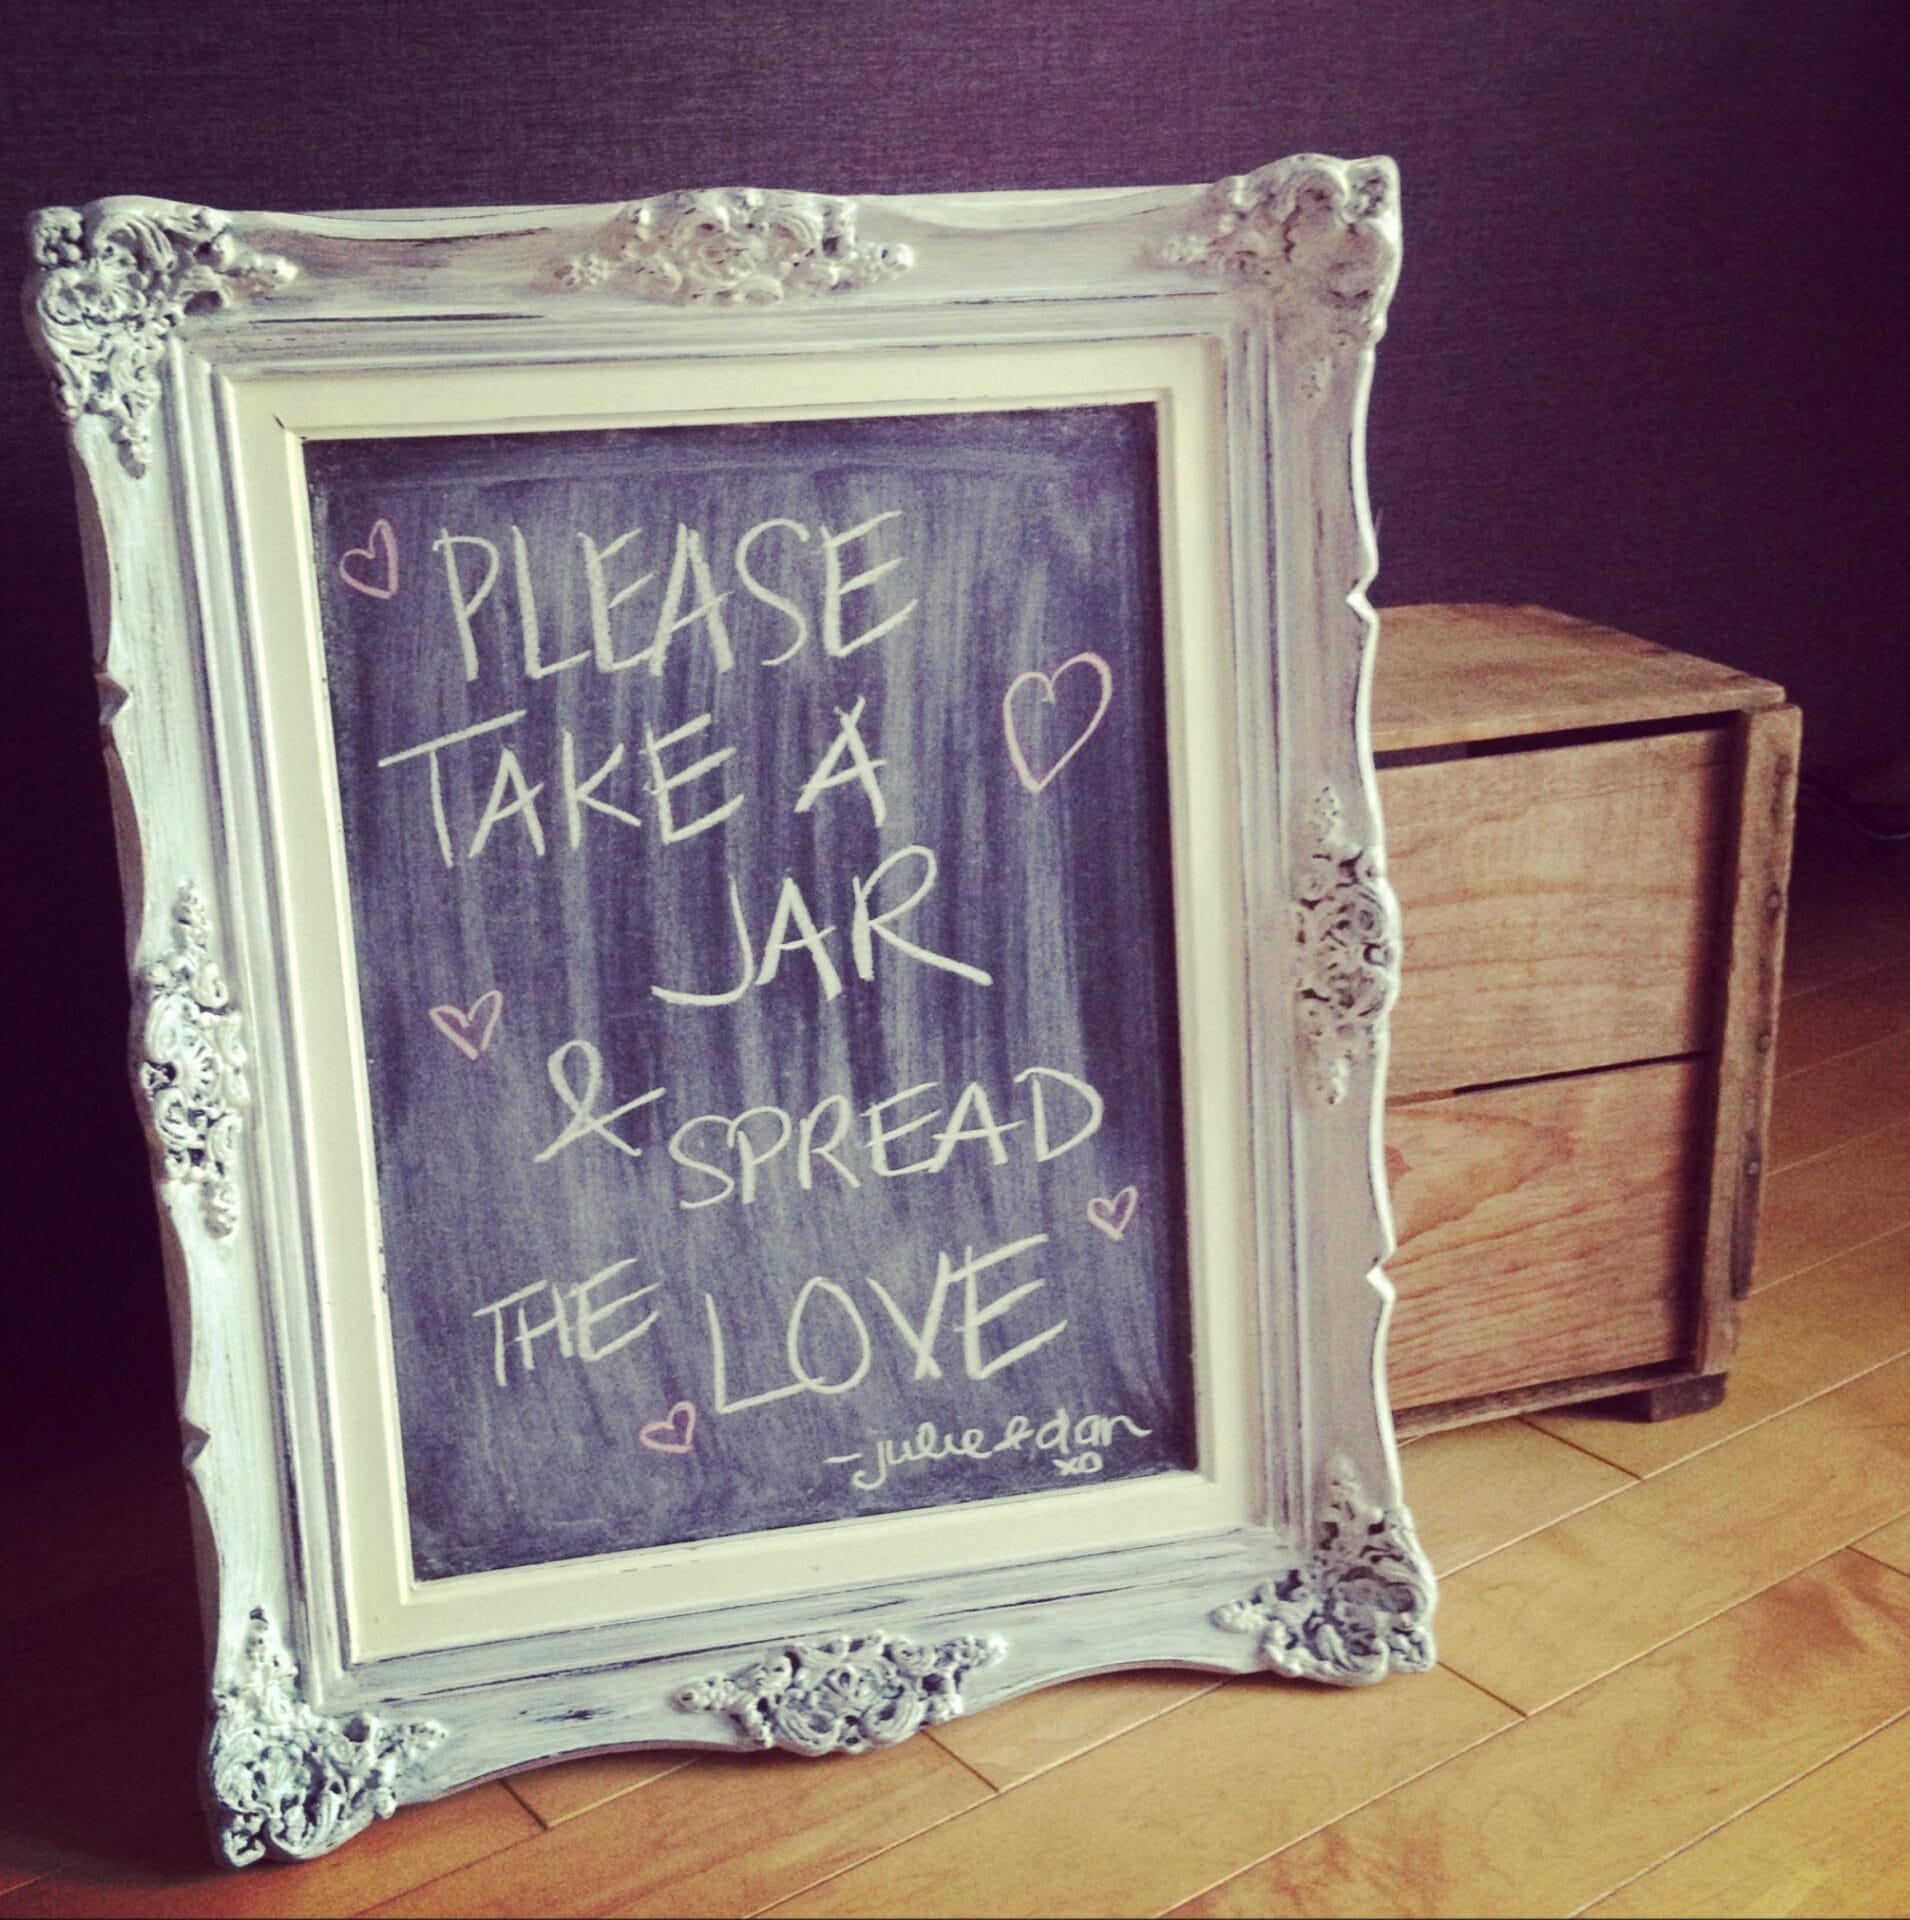 PLEASE
TAKE A
JAR
& SPREAD
THE LOVE
- julie & dan
xo